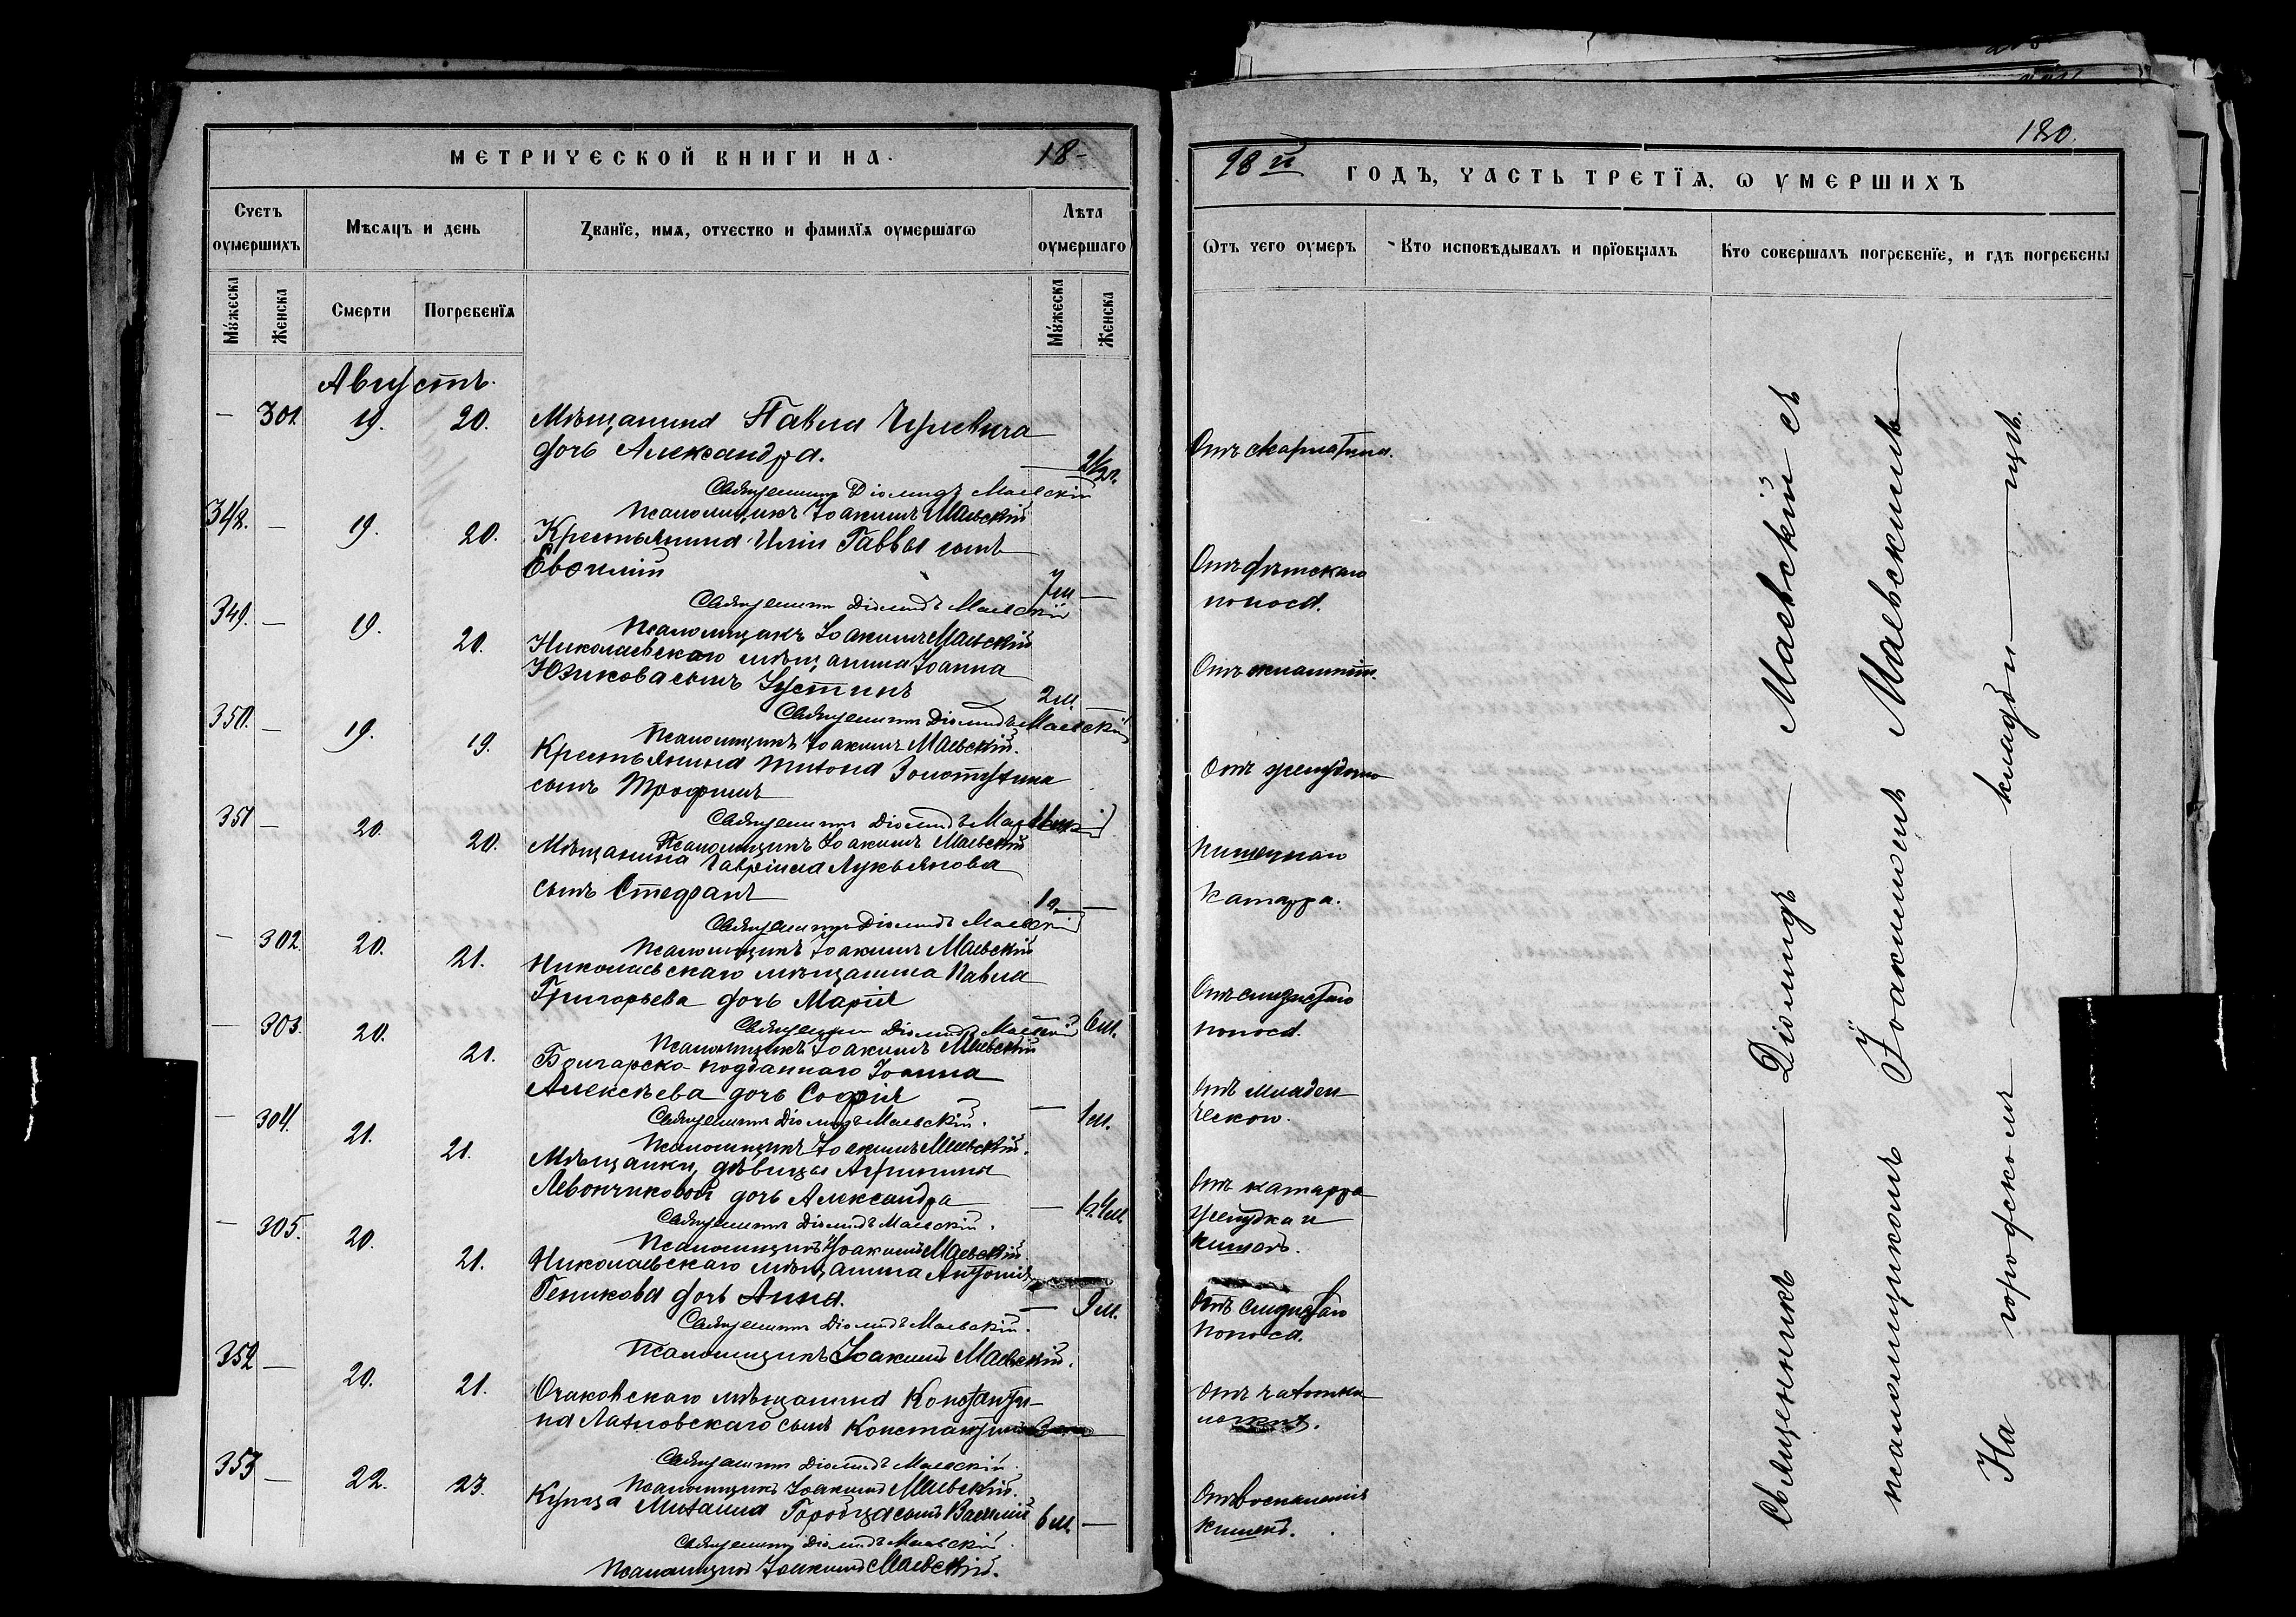 МЕТРИЧЕСКОЙ КНИГИ НА 18-
Счетъ оумершихъ
Мѣсяцъ и день
Званїе, имя, отчество и фамилїя оумершагѡ
Лѣта оумершаго
Мꙋжеска
Женска
Смерти
Погребенїя
Мꙋжеска
Женска
Августъ.
— 301. 19. 20. Мѣщанина Павла
дочь Александра. —
Священникъ Діомидъ Маевскій
Псаломщикъ Іоакимъ Маевскій
348. — 19. 20. Крестьянина Иліи Саввы сынъ
Евѳимій 7 м. —
Священникъ Діомидъ Маевскій
Псаломщикъ Іоакимъ Маевскій
349. — 19. 20. Николаевскаго мѣщанина Іоанна
сынъ Іустинъ 2 м.
Священникъ Діомидъ Маевскій
Псаломщикъ Іоакимъ Маевскій.
350. — 19. 19. Крестьянина Тихона
сынъ Трофимъ
Священникъ Діомидъ Маевскій
Псаломщикъ Іоакимъ Маевскій
351 — 20. 20. Мѣщанина Гавріила Лукьянова
сынъ Стефанъ 1 —
Священникъ Діомидъ Маевскій
Псаломщикъ Іоакимъ Маевскій
— 302. 20. 21. Николаевскаго мѣщанина Павла
Григорьева дочь Марія — 6 м.
Священникъ Діомидъ Маевскій
Псаломщикъ Іоакимъ Маевскій
— 303. 20. 21. Болгарско подданнаго Іоанна
Алексѣева дочь Софія — 1 м.
Священникъ Діомидъ Маевскій.
Псаломщикъ Іоакимъ Маевскій.
— 304. 21. 21. Мѣщанки, дѣвицы
дочь Александра —
Священникъ Діомидъ Маевскій.
Псаломщикъ Іоакимъ Маевскій.
— 305. 20. 21. Николаевскаго мѣщанина Антонія
дочь Анна. — 9 м.
Священникъ Діомидъ Маевскій.
Псаломщикъ Іоакимъ Маевскій.
352 — 20. 21. Очаковскаго мѣщанина Константи-
на сынъ Константинъ
Священникъ Діомидъ Маевскій.
Псаломщикъ Іоакимъ Маевскій.
353 — 22. 23. Купца Михаила сынъ Василій 6 м. —
Священникъ Діомидъ Маевскій.
Псаломщикъ Іоакимъ Маевскій.
180.
98й ГОДЪ, ЧАСТЬ ТРЕТЇЯ, Ѡ УМЕРШИХЪ
Ѿтъ чего оумеръ
Кто исповѣдывалъ и прїобщалъ
Кто совершалъ погребенїе, и гдѣ погребены
Отъ скарлатины.
Отъ дѣтскаго
поноса.
Отъ
Отъ желудочно
кишечнаго
катарра.
Отъ слизистаго
поноса.
Отъ младен
ческой.
Отъ катарра
желудка и
кишекъ.
Отъ слизистаго
поноса.
Отъ чахотки
Отъ воспаленія
кишекъ.
Священникъ — Діомидъ — Маевскій съ
псаломщикомъ Іоакимомъ Маевскимъ —
На городскомъ — кладби — щѣ.